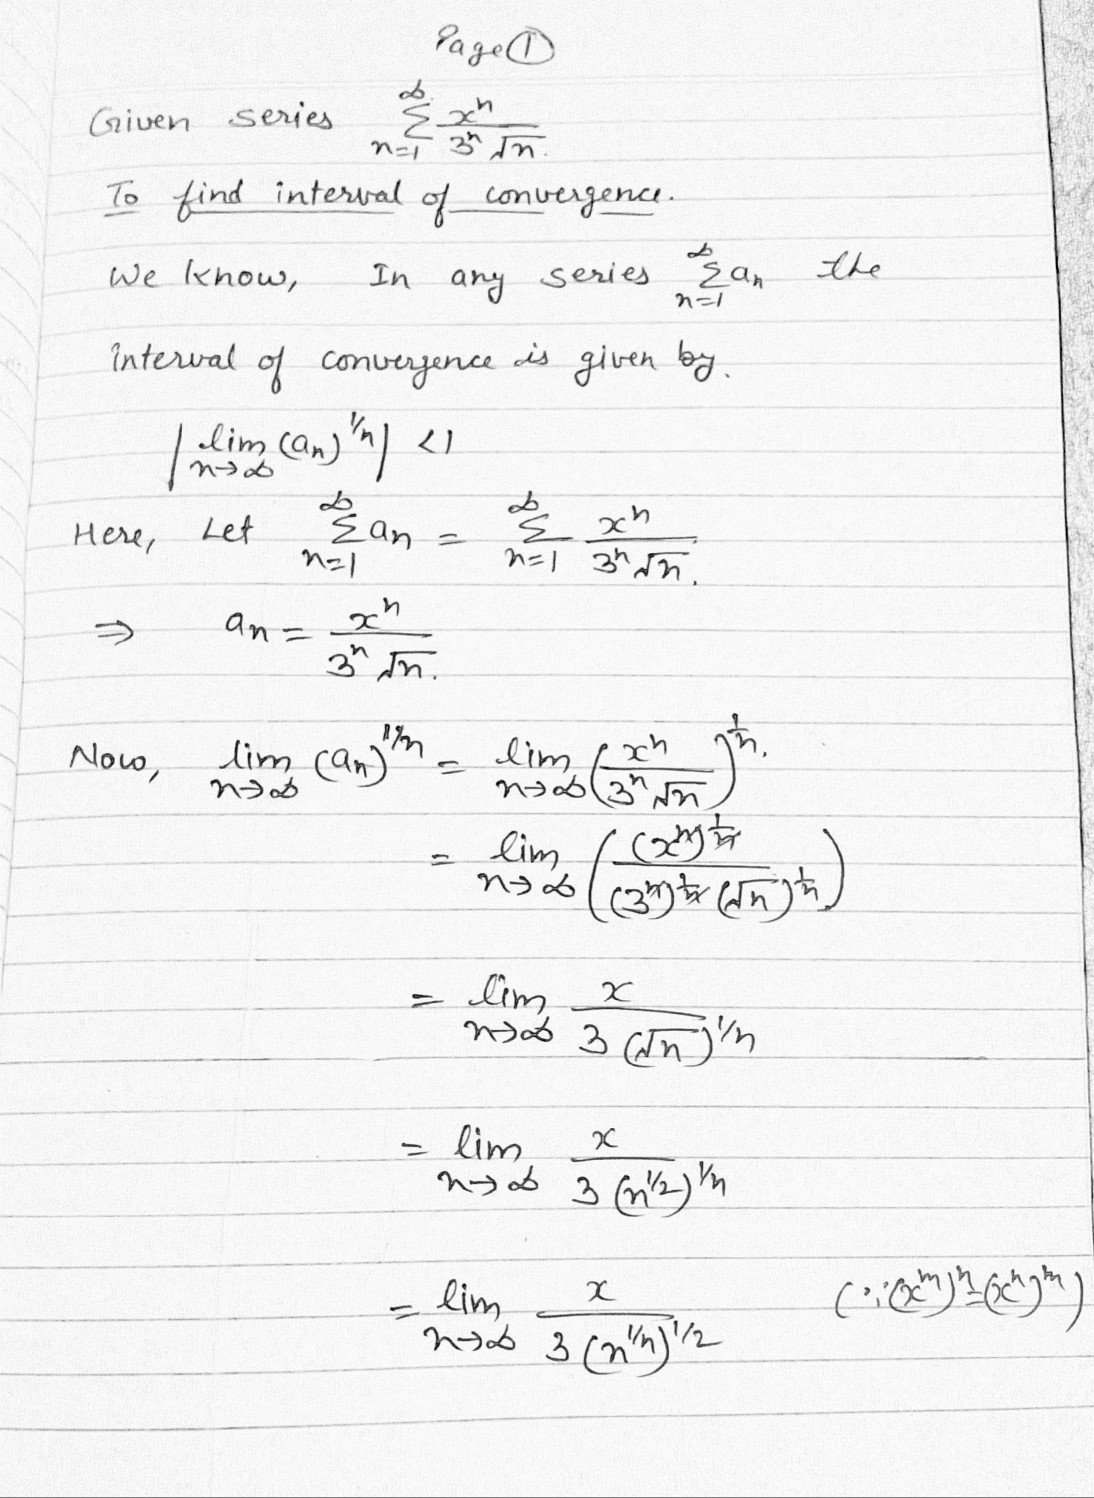 Page ①
Given series ∞Σn=1 xⁿ/3ⁿ√n.
To find interval of convergence.
We know, In any series ∞Σn=1 aₙ the
interval of convergence is given by.
|lim n→∞ (aₙ)^1/n| <1
Here, Let ∞Σn=1 aₙ = ∞Σn=1 xⁿ/3ⁿ√n.
⇒ aₙ = xⁿ/3ⁿ√n.
Now, lim n→∞ (aₙ)^1/n = lim n→∞ (xⁿ/3ⁿ√n)^1/n.
= lim n→∞ ((xⁿ)^1/n/(3ⁿ)^1/n (√n)^1/n)
= lim n→∞ x/3(√n)^1/n
= lim n→∞ x/3(n^1/2)^1/n
= lim n→∞ x/3(n^1/n)^1/2 (∵(x^m)^n=(x^n)^m)